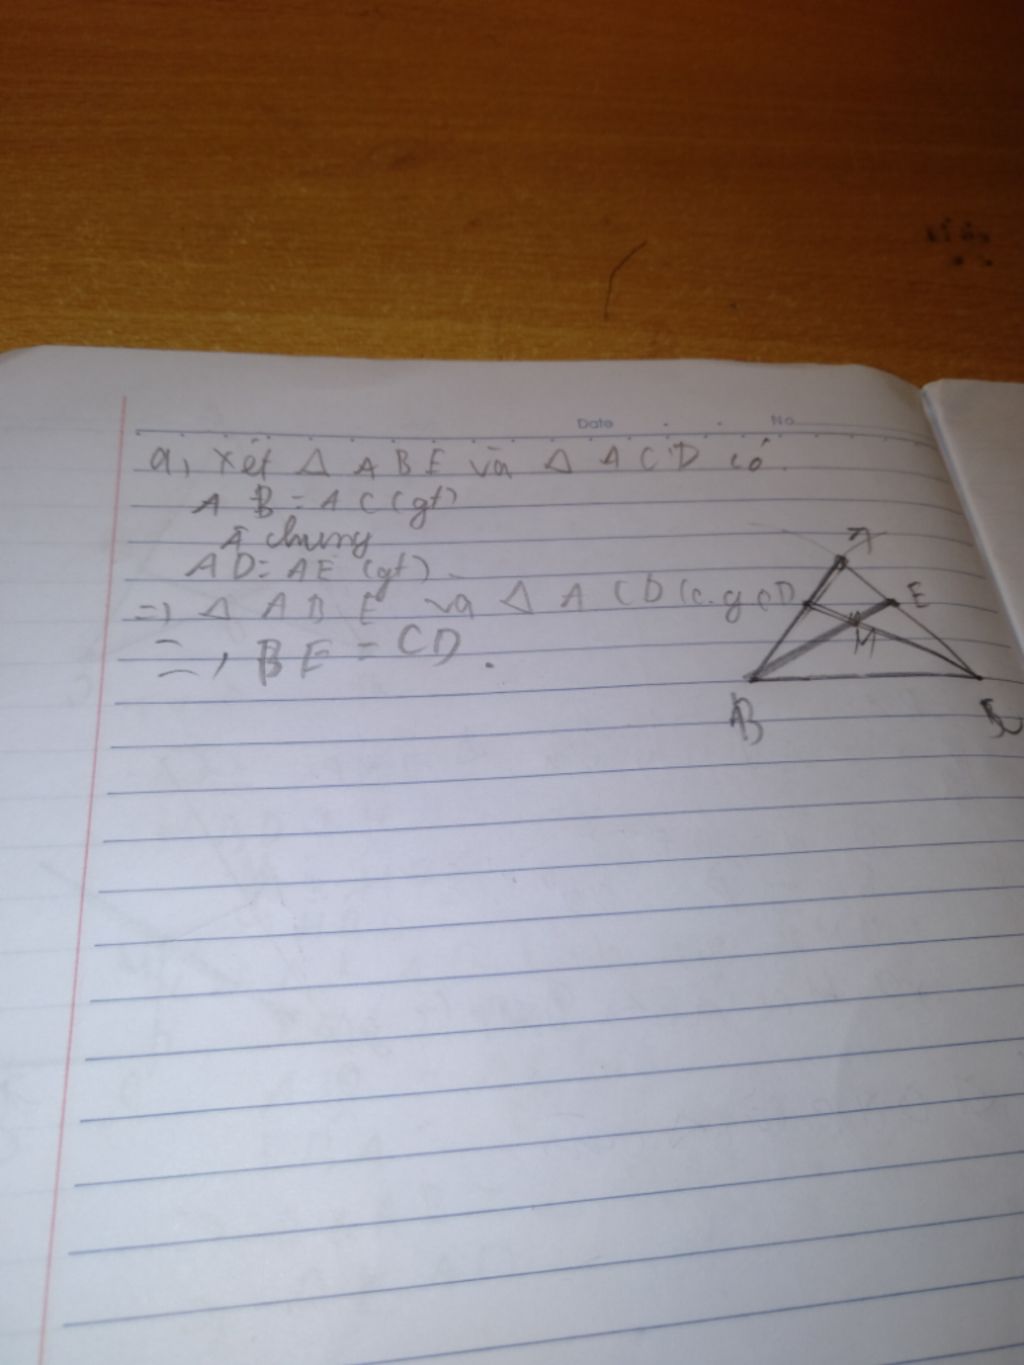 Date No
a, xét Δ ABE và Δ ACD có.
AB = AC (gt)
Â chung
AD = AE (gt)
=> Δ ABE và Δ ACD (c.g.c)
=> BE = CD.
A
D
E
M
B